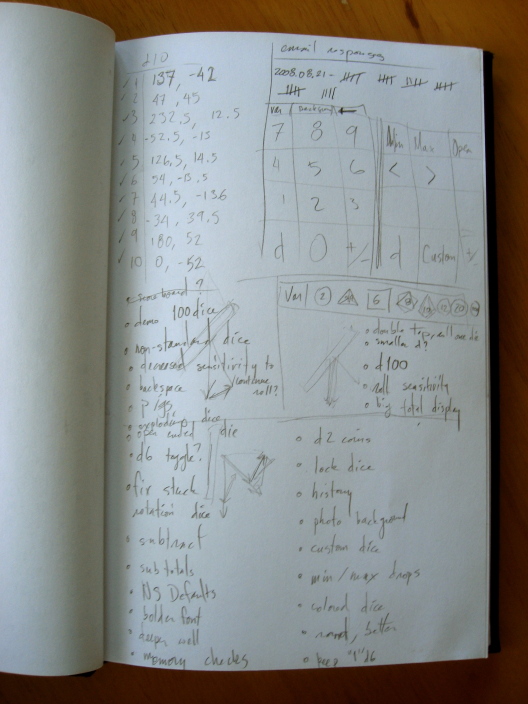 d10
1 137, -42
2 47, 45
3 232.5, 12.5
4 -52.5, -13
5 126.5, 14.5
6 54, -15.5
7 44.5, -136
8 -34, 39.5
9 180, 52
10 0, -52
email responses
2008.08.21 -
Var backspace
7 8 9
4 5 6
1 2 3
d 0 +/-
Min Max Open
< >
d Custom +/-
Var 2 6 8 10 12 20
• demo 100 dice
• non-standard dice
• decreased sensitivity to
continue roll?
• backspace
• pigs
• exploding dice
open ended die
• d6 toggle?
• fix stuck
rotation dice
• subtract
• subtotals
• NS Defaults
• bolder font
• deeper well
• memory checks
• double tap,
• smaller d?
• d100
• roll sensitivity
• big total display
• d2 coins
• lock dice
• history
• photo background
• custom dice
• min/max drops
• colored dice
• button
• keep